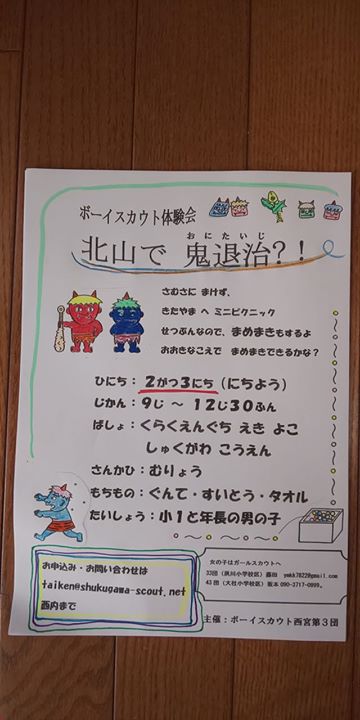 ボーイスカウト体験会
おにたいじ
北山で 鬼退治?!
さむさに まけず、
きたやま へ ミニピクニック
せつぶんなので、まめまきもするよ
おおきなこえで まめまきできるかな?
ひにち:2がつ3にち(にちよう)
じかん:9じ ～ 12じ30ふん
ばしょ:くらくえんぐち えき よこ
しゅくがわ こうえん
さんかひ:むりょう
もちもの:ぐんて・すいとう・タオル
たいしょう:小1と年長の男の子
お申込み・お問い合わせは
taiken@shukugawa-scout.net
西内まで
女の子はガールスカウトへ
33団(夙川小学校区)藤田 ymkk7822@gmail.com
43団(大社小学校区)阪本 090-3717-0999。
主催:ボーイスカウト西宮第3団